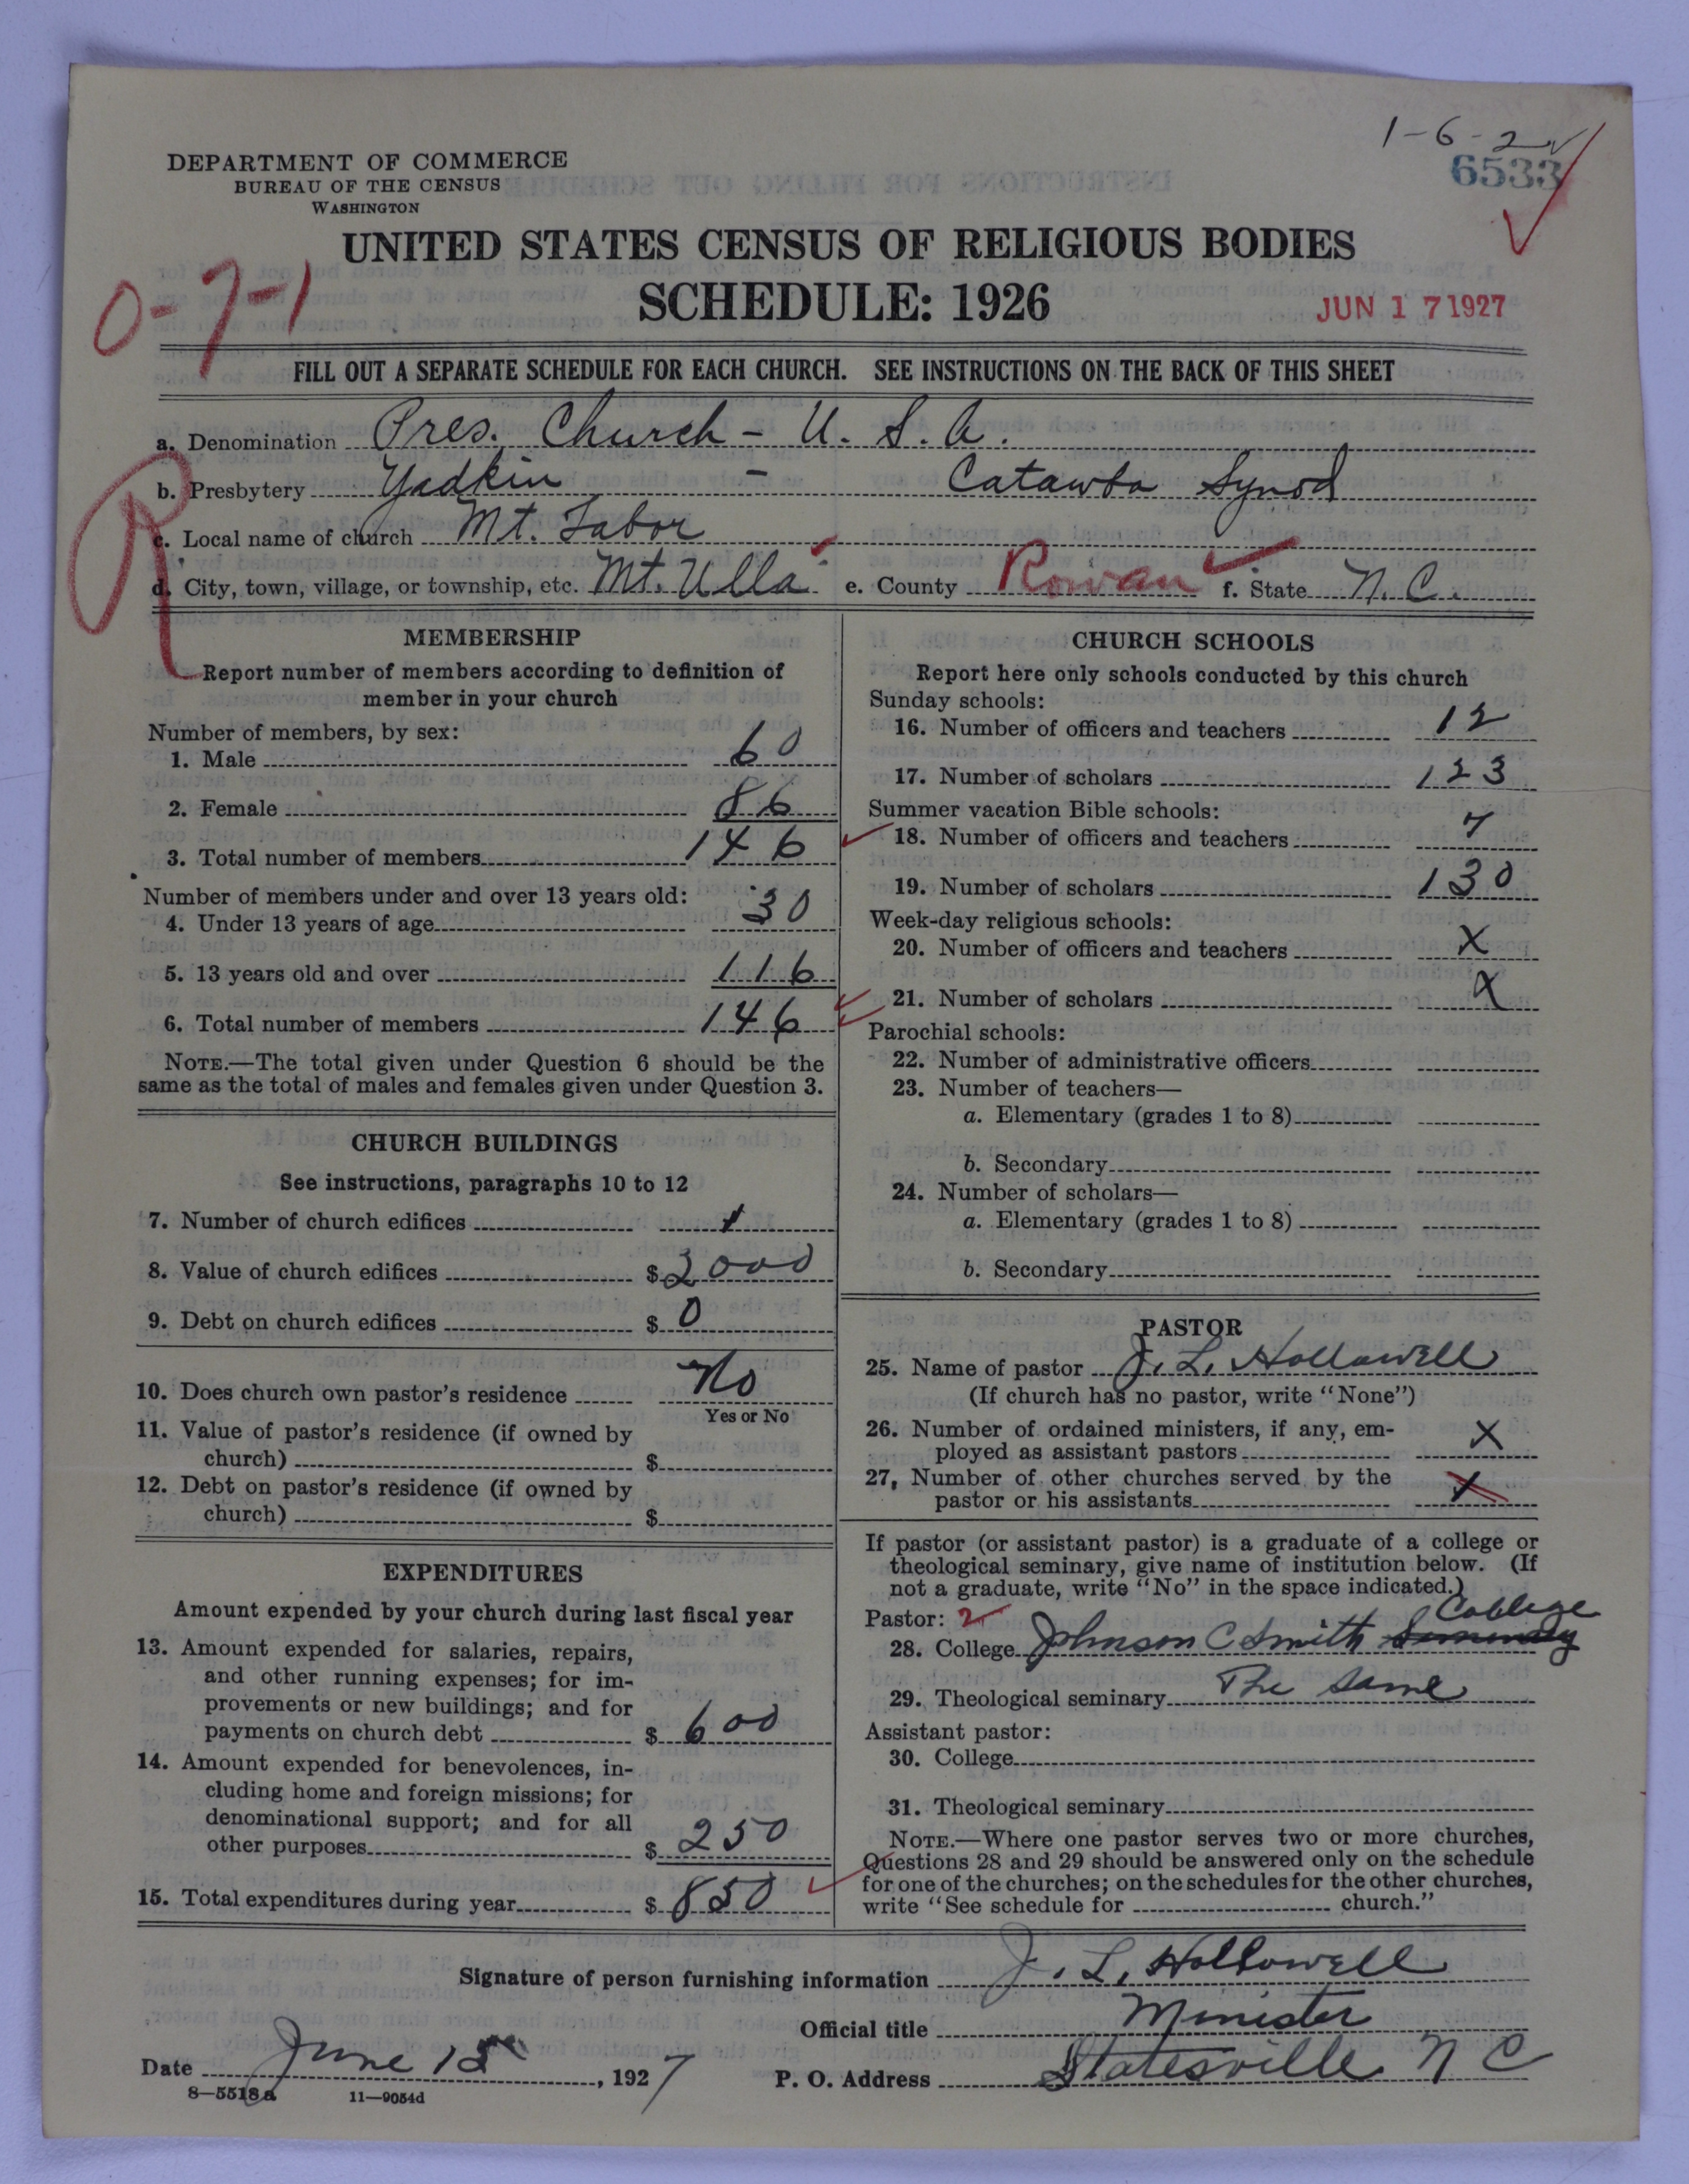 1-6-2
6533
DEPARTMENT OF COMMERCE
BUREAU OF THE CENSUS
WASHINGTON
UNITED STATES CENSUS OF RELIGIOUS BODIES
SCHEDULE: 1926
0-7-1
JUN 17 1927
FILL OUT A SEPARATE SCHEDULE FOR EACH CHURCH. SEE INSTRUCTIONS ON THE BACK OF THIS SHEET
a. Denomination Pres. Church - U. S. A.
b. Presbytery Yadkin - Catawba Synod
R
c. Local name of church Mt. Tabor
d. City, town, village, or township, etc. Mt. Ulla e. County Rowan f. State N. C.
MEMBERSHIP
Report number of members according to definition of
member in your church
Number of members, by sex:
1. Male 60
2. Female 86
3. Total number of members 146
Number of members under and over 13 years old:
4. Under 13 years of age 30
5. 13 years old and over 116
6. Total number of members 146
NOTE.—The total given under Question 6 should be the
same as the total of males and females given under Question 3.
CHURCH BUILDINGS
See instructions, paragraphs 10 to 12
7. Number of church edifices 1
8. Value of church edifices $ 2000
9. Debt on church edifices $ 0
10. Does church own pastor's residence No
Yes or No
11. Value of pastor's residence (if owned by
church) $
12. Debt on pastor's residence (if owned by
church) $
EXPENDITURES
Amount expended by your church during last fiscal year
13. Amount expended for salaries, repairs,
and other running expenses; for im-
provements or new buildings; and for
payments on church debt $ 600
14. Amount expended for benevolences, in-
cluding home and foreign missions; for
denominational support; and for all
other purposes $ 250
15. Total expenditures during year $ 850
CHURCH SCHOOLS
Report here only schools conducted by this church
Sunday schools:
16. Number of officers and teachers 12
17. Number of scholars 123
Summer vacation Bible schools:
18. Number of officers and teachers 7
19. Number of scholars 130
Week-day religious schools:
20. Number of officers and teachers X
21. Number of scholars X
Parochial schools:
22. Number of administrative officers
23. Number of teachers—
a. Elementary (grades 1 to 8)
b. Secondary
24. Number of scholars—
a. Elementary (grades 1 to 8)
b. Secondary
PASTOR
25. Name of pastor J. L. Hollowell
(If church has no pastor, write "None")
26. Number of ordained ministers, if any, em-
ployed as assistant pastors X
27. Number of other churches served by the
pastor or his assistants 1
If pastor (or assistant pastor) is a graduate of a college or
theological seminary, give name of institution below. (If
not a graduate, write "No" in the space indicated.)
Pastor: 2 College
28. College Johnson C Smith Seminary
29. Theological seminary The same
Assistant pastor:
30. College
31. Theological seminary
NOTE.—Where one pastor serves two or more churches,
Questions 28 and 29 should be answered only on the schedule
for one of the churches; on the schedules for the other churches,
write "See schedule for church."
Signature of person furnishing information J. L. Hollowell
Official title Minister
Date June 15, 1927 P. O. Address Statesville N C
8—5518a 11—9054d